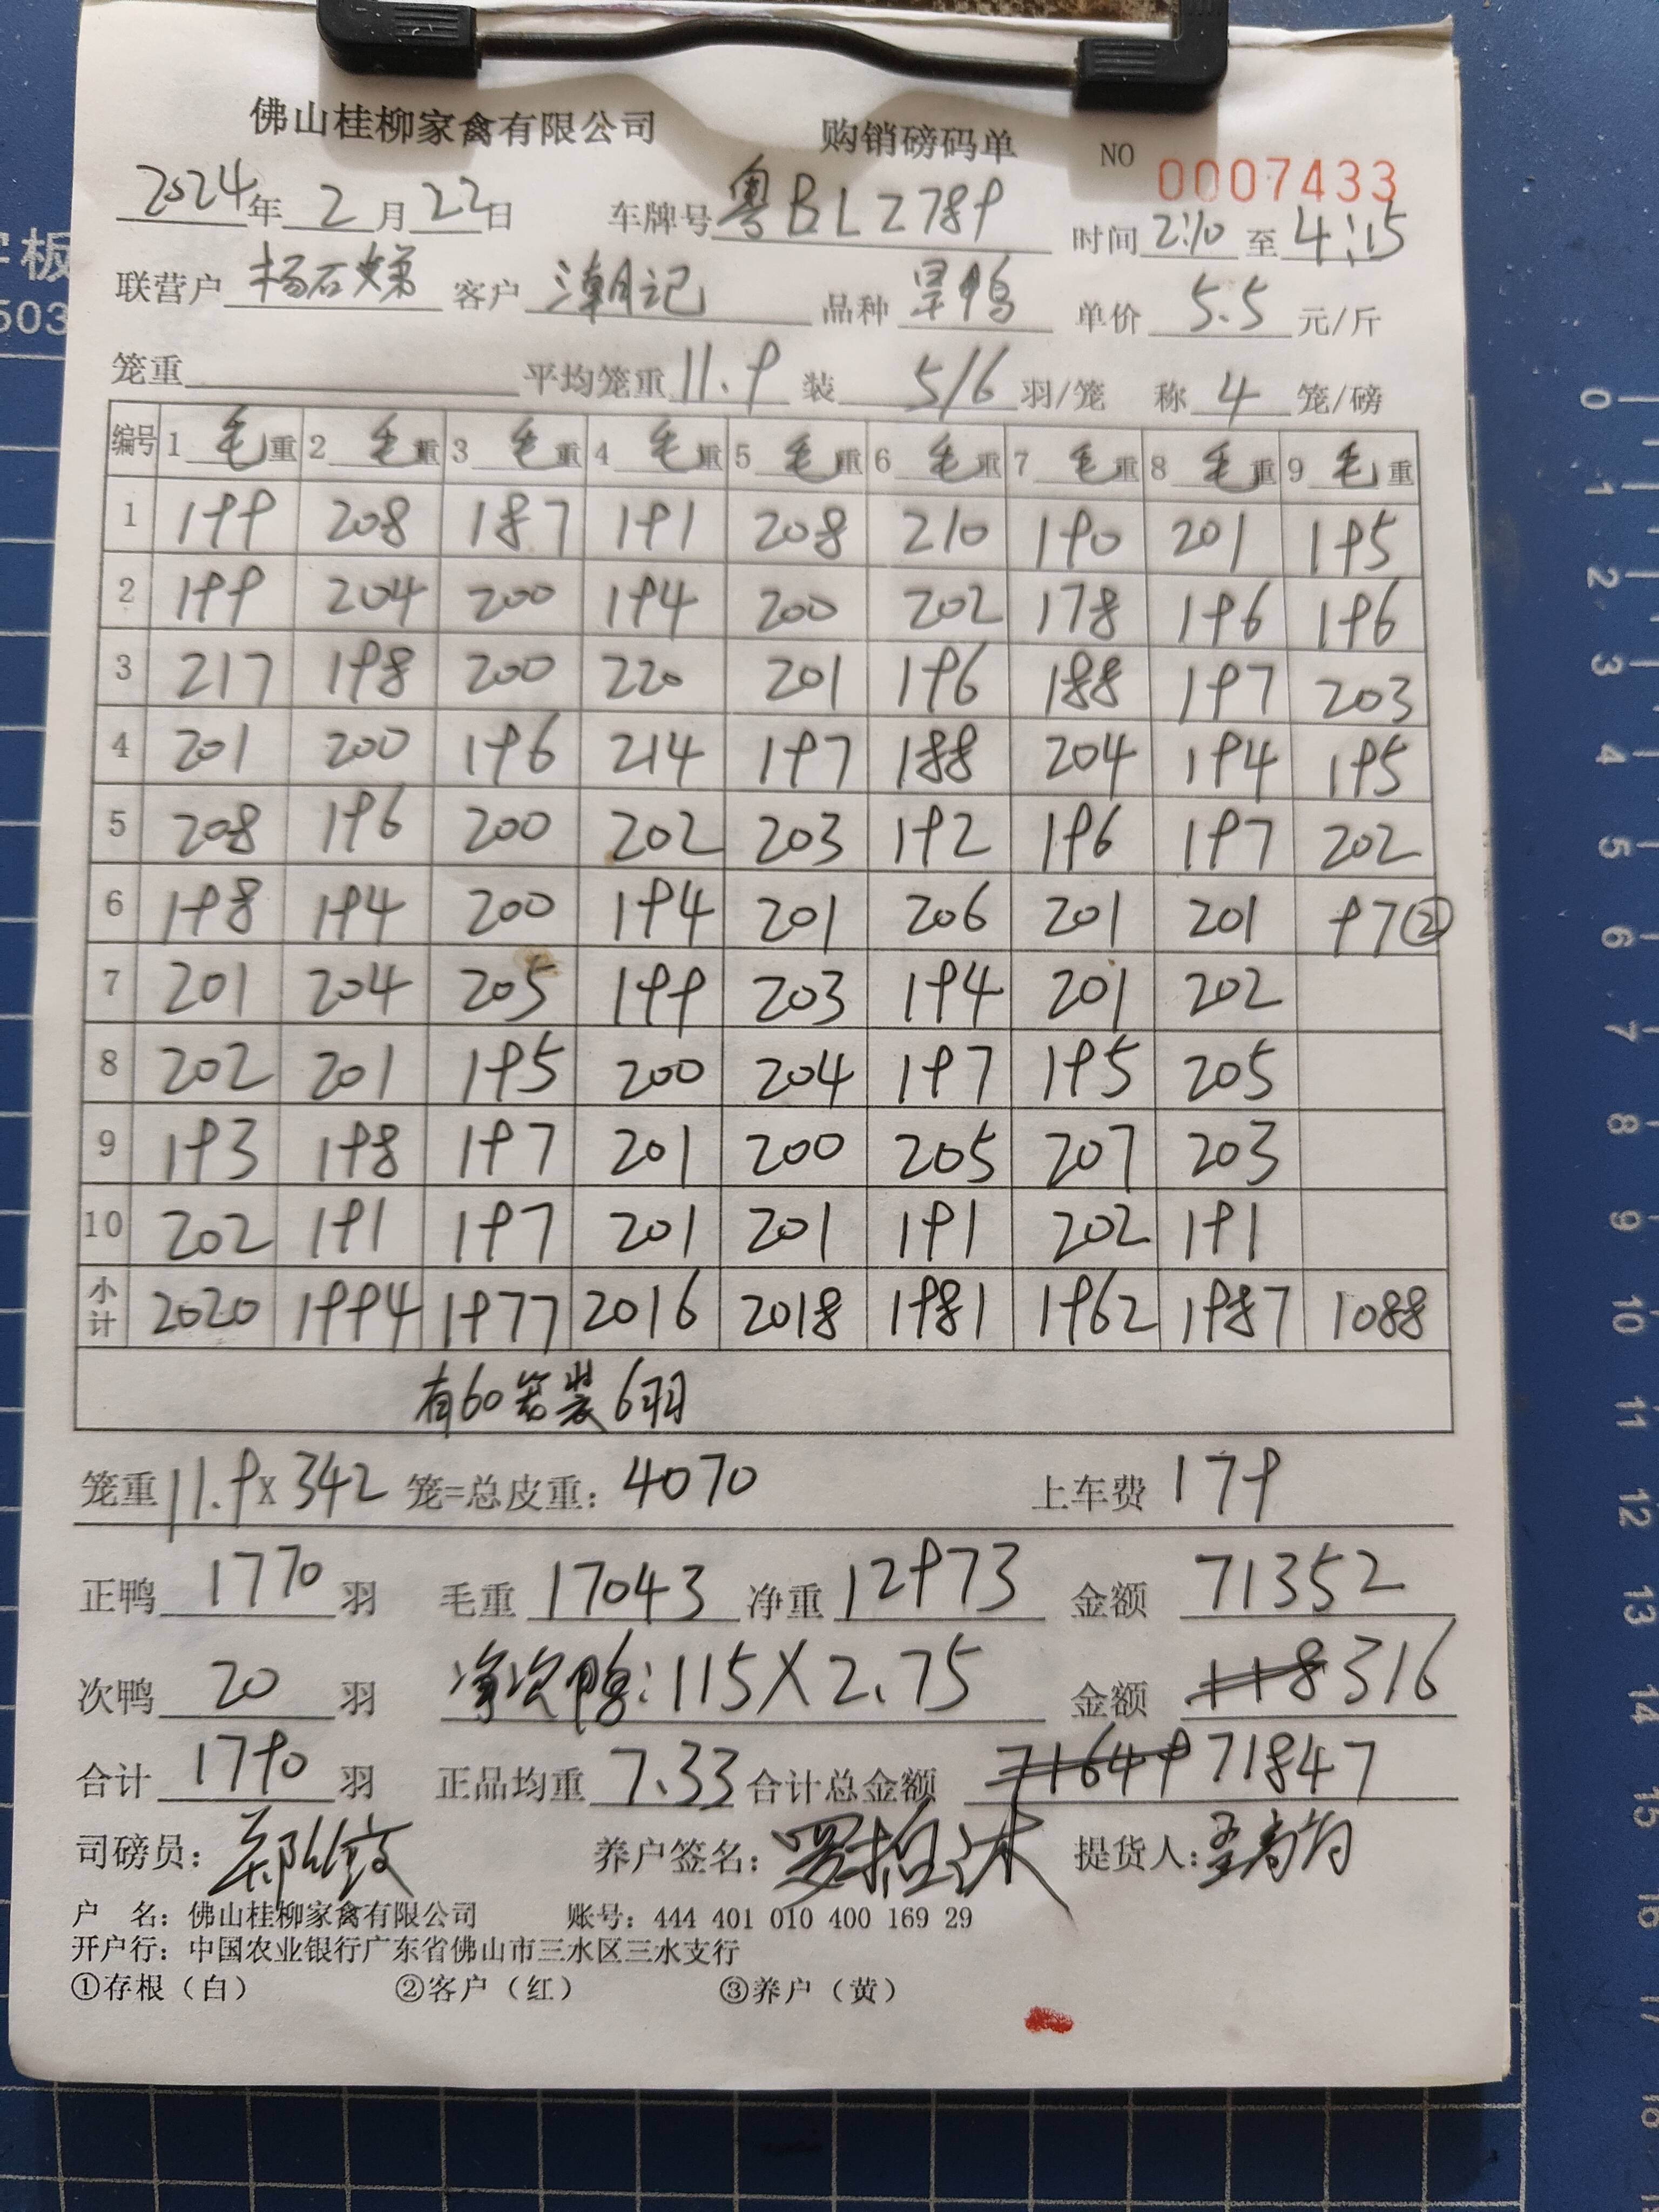 佛山桂柳家禽有限公司 购销磅码单 NO 0007433
2024年 2月22日 车牌号 粤BLZ789 时间 2:10 至 4:15
联营户 杨石娣 客户 潮记 品种 旱鸭 单价 5.5 元/斤
笼重 平均笼重 11.9 装 5/6 羽/笼 称 4 笼/磅
编号 1 毛重 2 毛重 3 毛重 4 毛重 5 毛重 6 毛重 7 毛重 8 毛重 9 毛重
1 199 208 187 191 208 210 190 201 195
2 199 204 200 194 200 202 178 196 196
3 217 198 200 220 201 196 188 197 203
4 201 200 196 214 197 188 204 194 195
5 208 196 200 202 203 192 196 197 202
6 198 194 200 194 201 206 201 201 97②
7 201 204 205 199 203 194 201 202
8 202 201 195 200 204 197 195 205
9 193 198 197 201 200 205 207 203
10 202 191 197 201 201 191 202 191
小计 2020 1994 1977 2016 2018 1981 1962 1987 1088
有60笼装6羽
笼重 11.9X342 笼=总皮重：4070 上车费 179
正鸭 1770 羽 毛重 17043 净重 12973 金额 71352
次鸭 20 羽 净次鸭：115X2.75 金额 118 316
合计 1790 羽 正品均重 7.33 合计总金额 71649 71847
司磅员： 养户签名： 提货人：
户 名：佛山桂柳家禽有限公司 账号：444 401 010 400 169 29
开户行：中国农业银行广东省佛山市三水区三水支行
①存根（白） ②客户（红） ③养户（黄）
字板
503
0
1
2
3
4
5
6
7
8
9
10
11
12
13
14
15
16
17
18